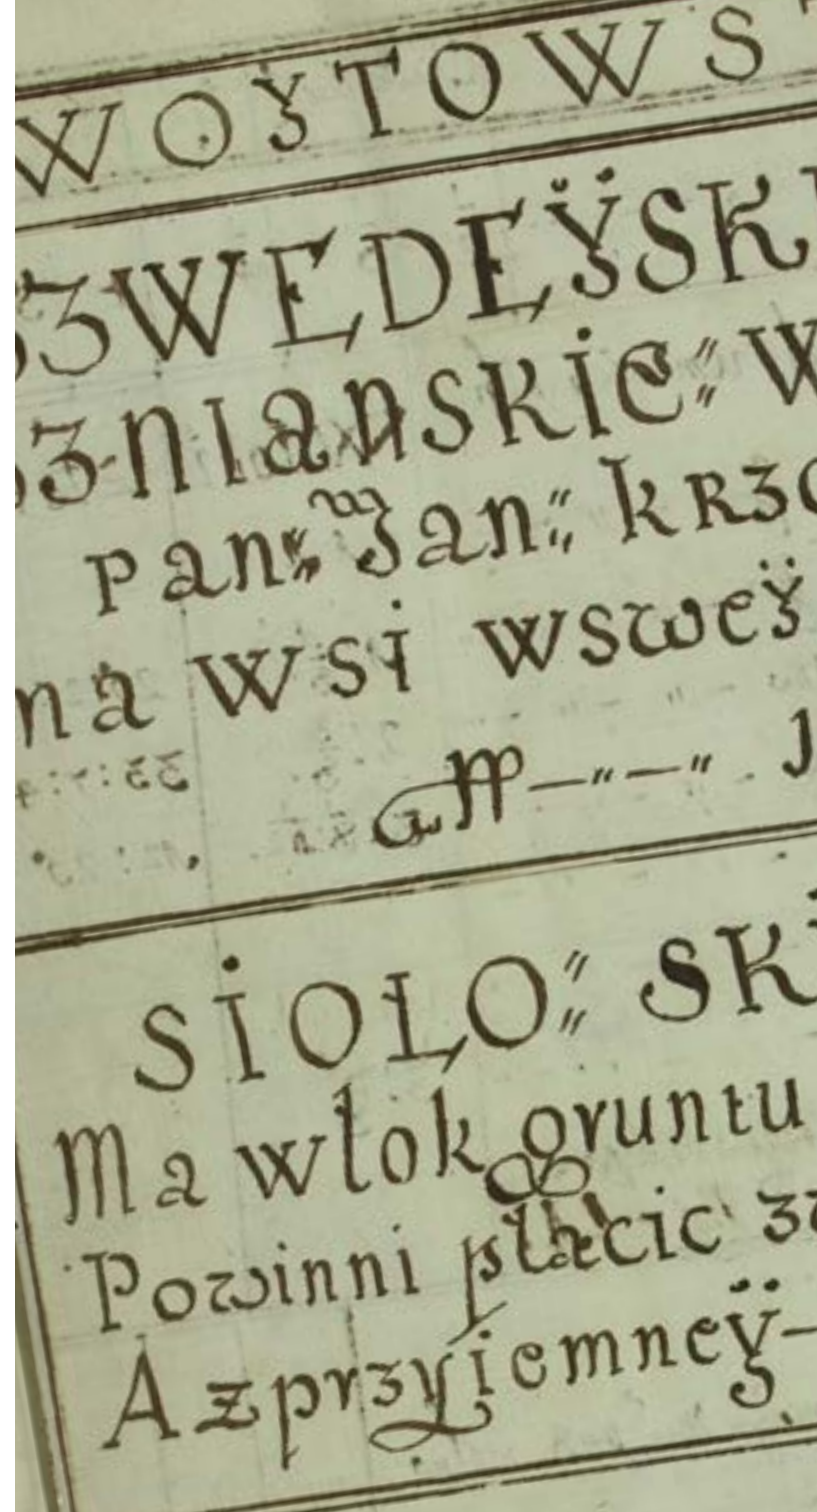 WOYTOWS
ZWEDEŸSK
ZNIANSKIE: W
Pan: Jan: KRZ
na WSi wsweÿ
SIOLO: SK
Ma wlok gruntu
Powinni płacic
A z przyiemneÿ–